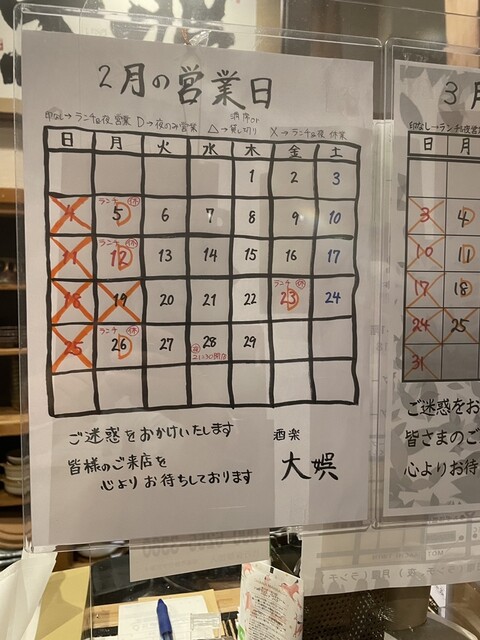 2月の営業日
満席or
印なし→ランチ&夜営業 D→夜のみ営業 △→貸し切り X→ランチ&夜休業
日 月 火 水 木 金 土
1 2 3
ランチ 休
4 5 6 7 8 9 10
ランチ 休
11 12 13 14 15 16 17
ランチ 休
18 19 20 21 22 23 24
ランチ 休
25 26 27 28 29
21:30閉店
ご迷惑をおかけいたします
皆様のご来店を
心よりお待ちしております
酒楽
大娯
3月
印なし→ランチ&夜営業
日 月
3 4
10 11
17 18
24 25
31
ご迷惑をお
皆さまのご
心よりお待